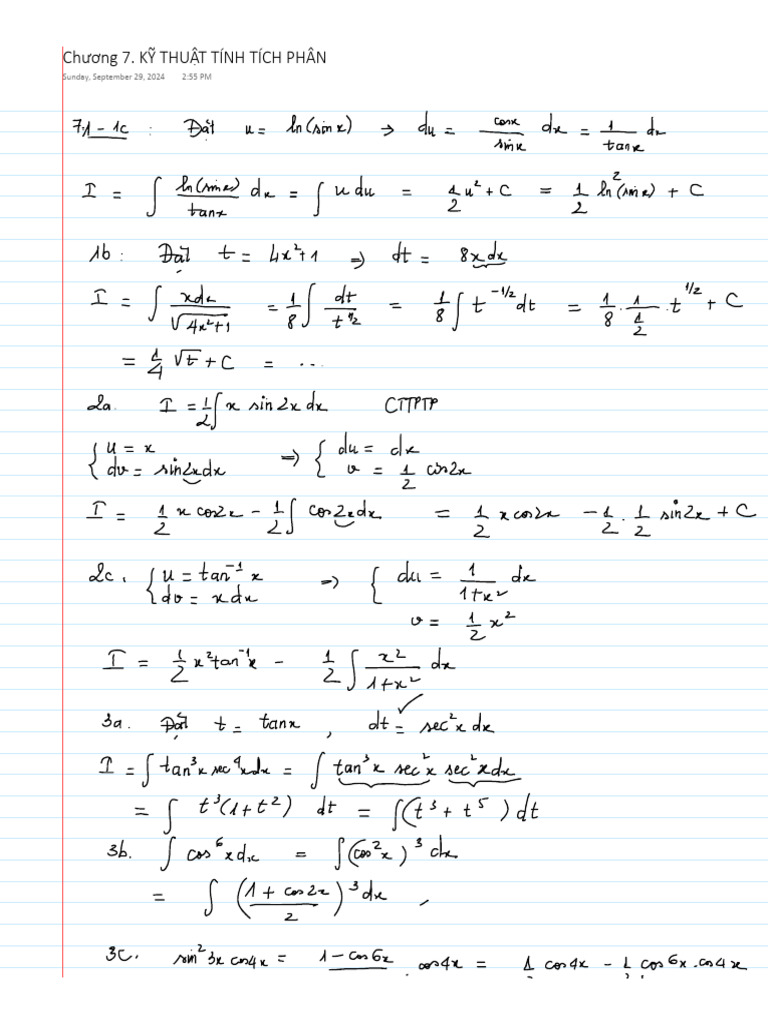 Chương 7. KỸ THUẬT TÍNH TÍCH PHÂN
Sunday, September 29, 2024 2:55 PM
7.1 - 1c : Đặt u = ln(sinx) → du = cosx/sinx dx = 1/tanx dx
I = ∫ ln(sinx)/tanx dx = ∫ u du = 1/2 u² + C = 1/2 ln²(sinx) + C
1b : Đặt t = 4x²+1 ⇒ dt = 8xdx
I = ∫ xdx/√(4x²+1) = 1/8 ∫ dt/t^(1/2) = 1/8 ∫ t^(-1/2) dt = 1/8 · 1/(1/2) · t^(1/2) + C
= 1/4 √t + C = ...
2a. I = 1/2 ∫ x sin2x dx CTTPTP
{ u = x ⇒ { du = dx
{ dv = sin2xdx { v = 1/2 cos2x
I = 1/2 x cos2x - 1/2 ∫ cos2xdx = 1/2 x cos2x - 1/2 · 1/2 sin2x + C
2c. { u = tan⁻¹ x ⇒ { du = 1/(1+x²) dx
{ dv = xdx v = 1/2 x²
I = 1/2 x² tan⁻¹x - 1/2 ∫ x²/(1+x²) dx
3a. Đặt t = tanx , dt = sec²x dx ✓
I = ∫ tan³x sec⁴xdx = ∫ tan³x sec²x sec²xdx
= ∫ t³(1+t²) dt = ∫(t³ + t⁵) dt
3b. ∫ cos⁶xdx = ∫(cos²x)³ dx
= ∫ ((1 + cos2x)/2)³ dx
3c. sin²3x cos4x = 1 - cos6x . cos4x = 1 cos4x - 1 cos6x . cos4x